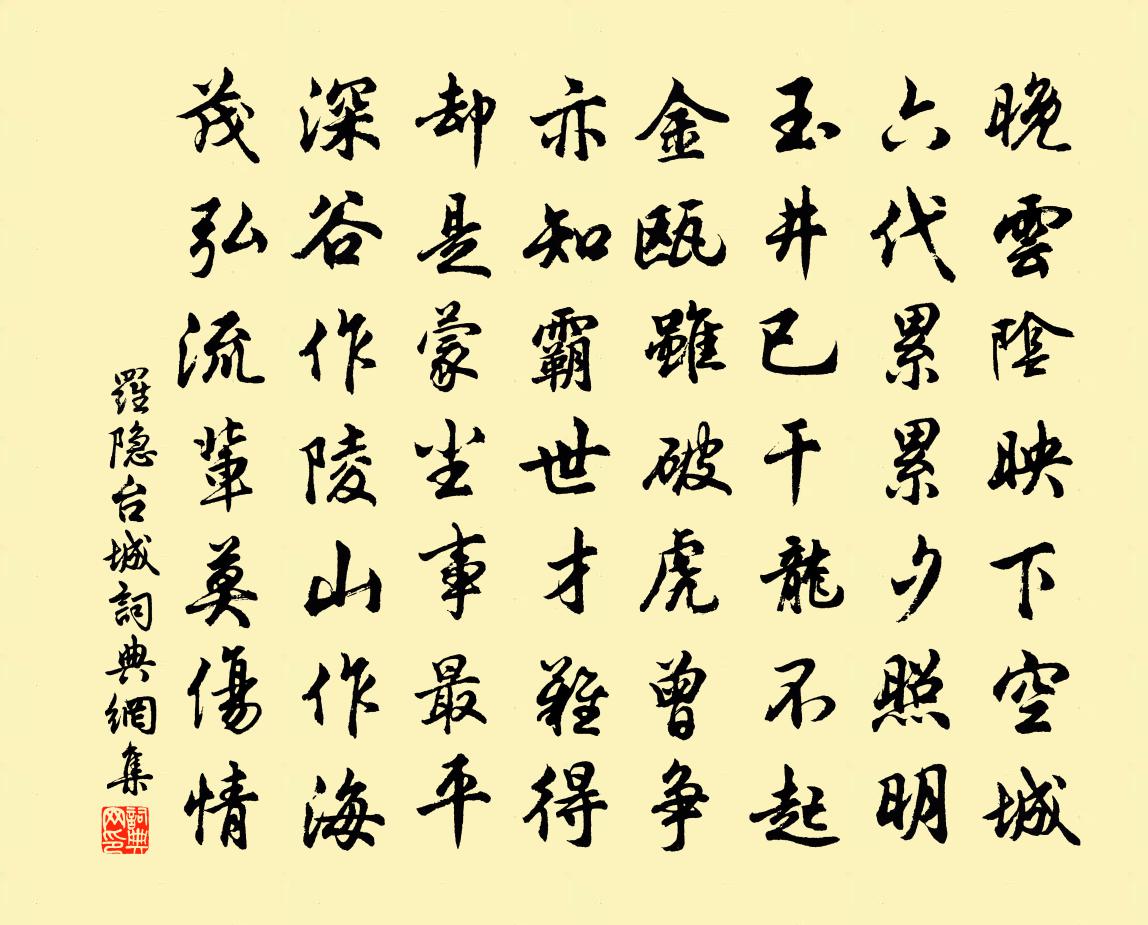 晚雲陰映下空城
六代累累夕照明
玉井已干龍不起
金甌雖破虎曾争
亦知霸世才難得
却是蒙尘事最平
深谷作陵山作海
茂弘流輩莫傷情
羅隐台城詞典網集
詞典
网印